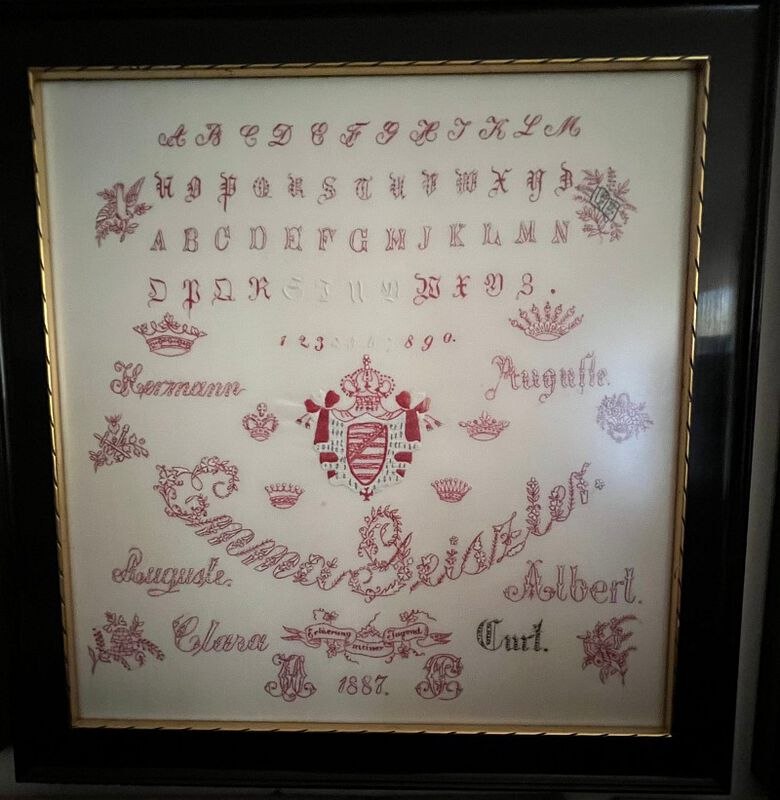 A B C D E F G H I K L M
N O P Q R S T U V W X Y Z
A B C D E F G H J K L M N
O P Q R S T U V W X Y Z.
1 2 3 4 5 6 7 8 9 0.
Hermann Auguste.
Emma Geißler.
Auguste. Albert.
Clara Erinerung meiner Jugend Curt.
1887.